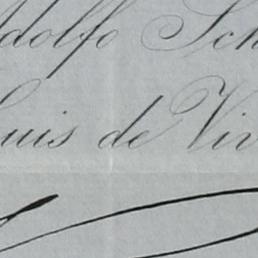 dolfo Sch
uis de Viv